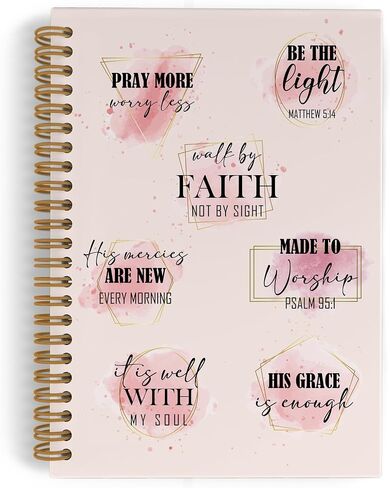 PRAY MORE
worry less
BE THE
light
MATTHEW 5:14
walk by
FAITH
NOT BY SIGHT
His mercies
ARE NEW
EVERY MORNING
MADE TO
Worship
PSALM 95:1
it is well
WITH
MY SOUL
HIS GRACE
is enough